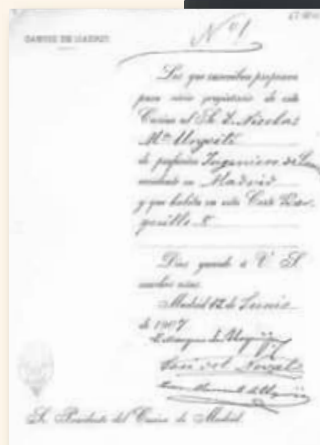 CASINO DE MADRID
Nº 1
Los que suscriben proponen
para socio propietario de este
Casino al Sr. D. Nicolas
Mª Urgoiti
de profesión Ingeniero de
residente en Madrid
y que habita en esta Corte
8
Dios guarde á V. S.
muchos años.
Madrid 12 de Junio
de 1907
El Marques de Urquijo
José del
de Urquijo
Sr. Presidente del Casino de Madrid.